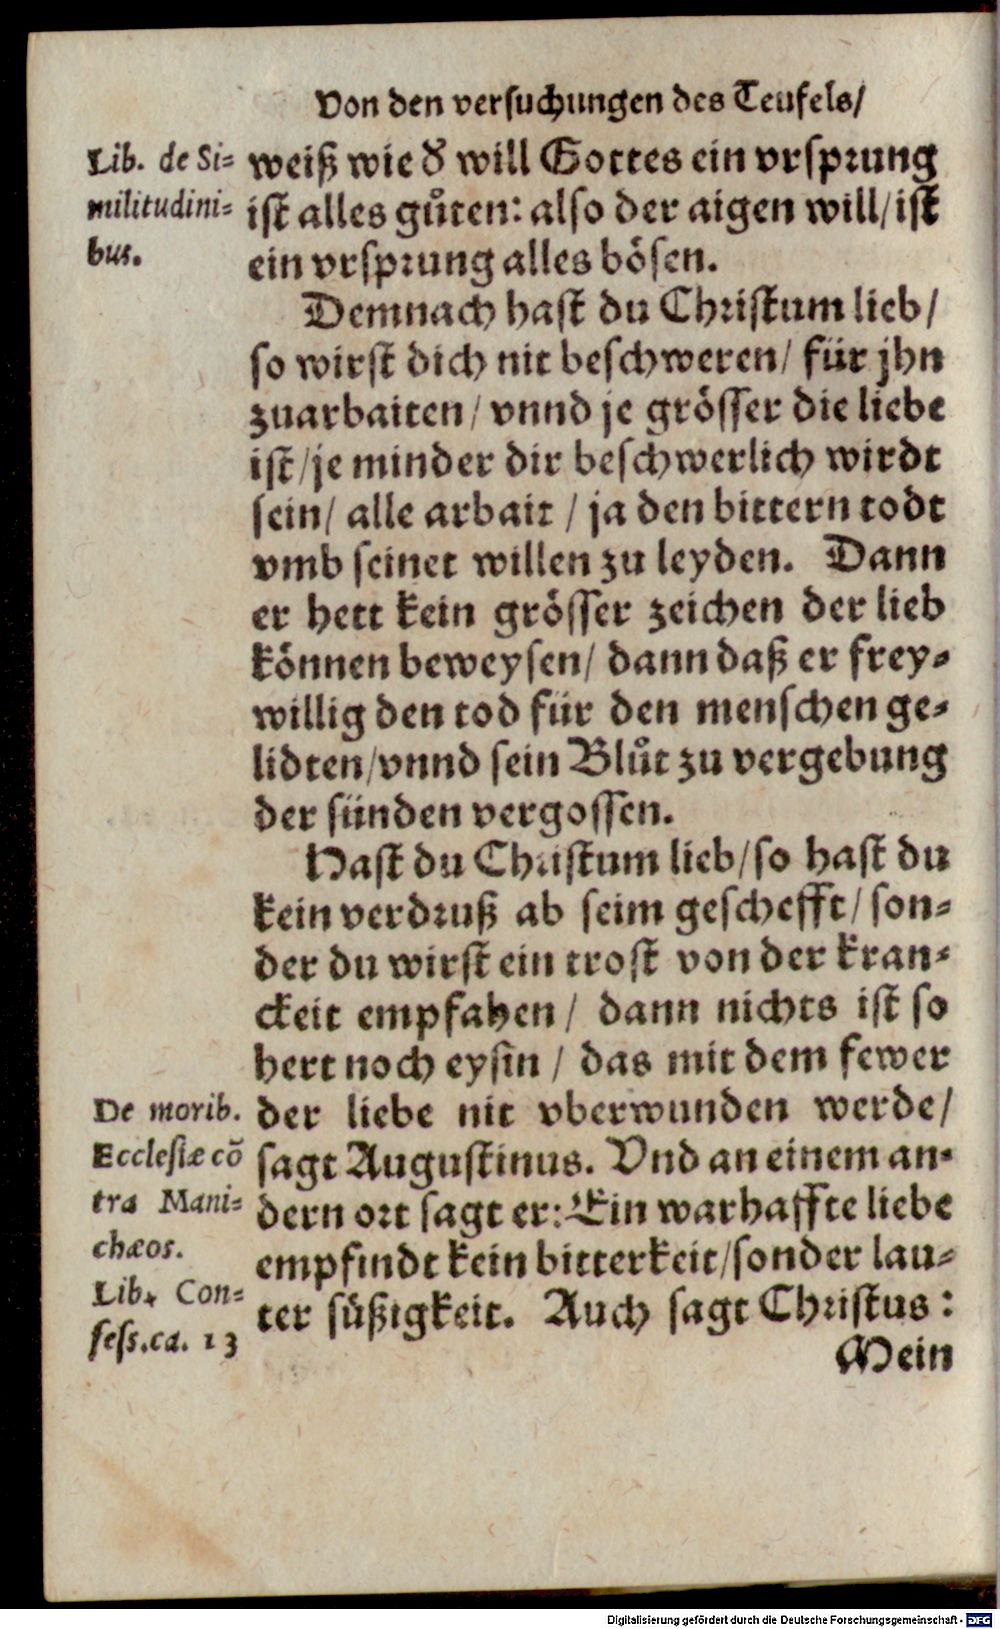 Von den versuchungen des Teufels/
Lib. de Si-
militudini-
bus.
weiß wie d' will Gottes ein vrsprung
ist alles gůten: also der aigen will/ ist
ein vrsprung alles bösen.
Demnach hast du Christum lieb/
so wirst dich nit beschweren/ für jhn
zuarbaiten/ vnnd je grösser die liebe
ist/ je minder dir beschwerlich wirdt
sein/ alle arbait / ja den bittern todt
vmb seinet willen zu leyden. Dann
er hett kein grösser zeichen der lieb
können beweysen/ dann daß er frey-
willig den tod für den menschen ge-
lidten/ vnnd sein Blůt zu vergebung
der sünden vergossen.
Hast du Christum lieb/ so hast du
kein verdruß ab seim geschefft/ son-
der du wirst ein trost von der kran-
ckeit empfahen/ dann nichts ist so
hert noch eysin / das mit dem fewer
der liebe nit vberwunden werde/
sagt Augustinus. Vnd an einem an-
dern ort sagt er: Ein warhaffte liebe
empfindt kein bitterkeit/ sonder lau-
ter süßigkeit. Auch sagt Christus:
De morib.
Ecclesiæ cō
tra Mani-
chæos.
Lib. Con-
fess. ca. 13
Mein
Digitalisierung gefördert durch die Deutsche Forschungsgemeinschaft - DFG